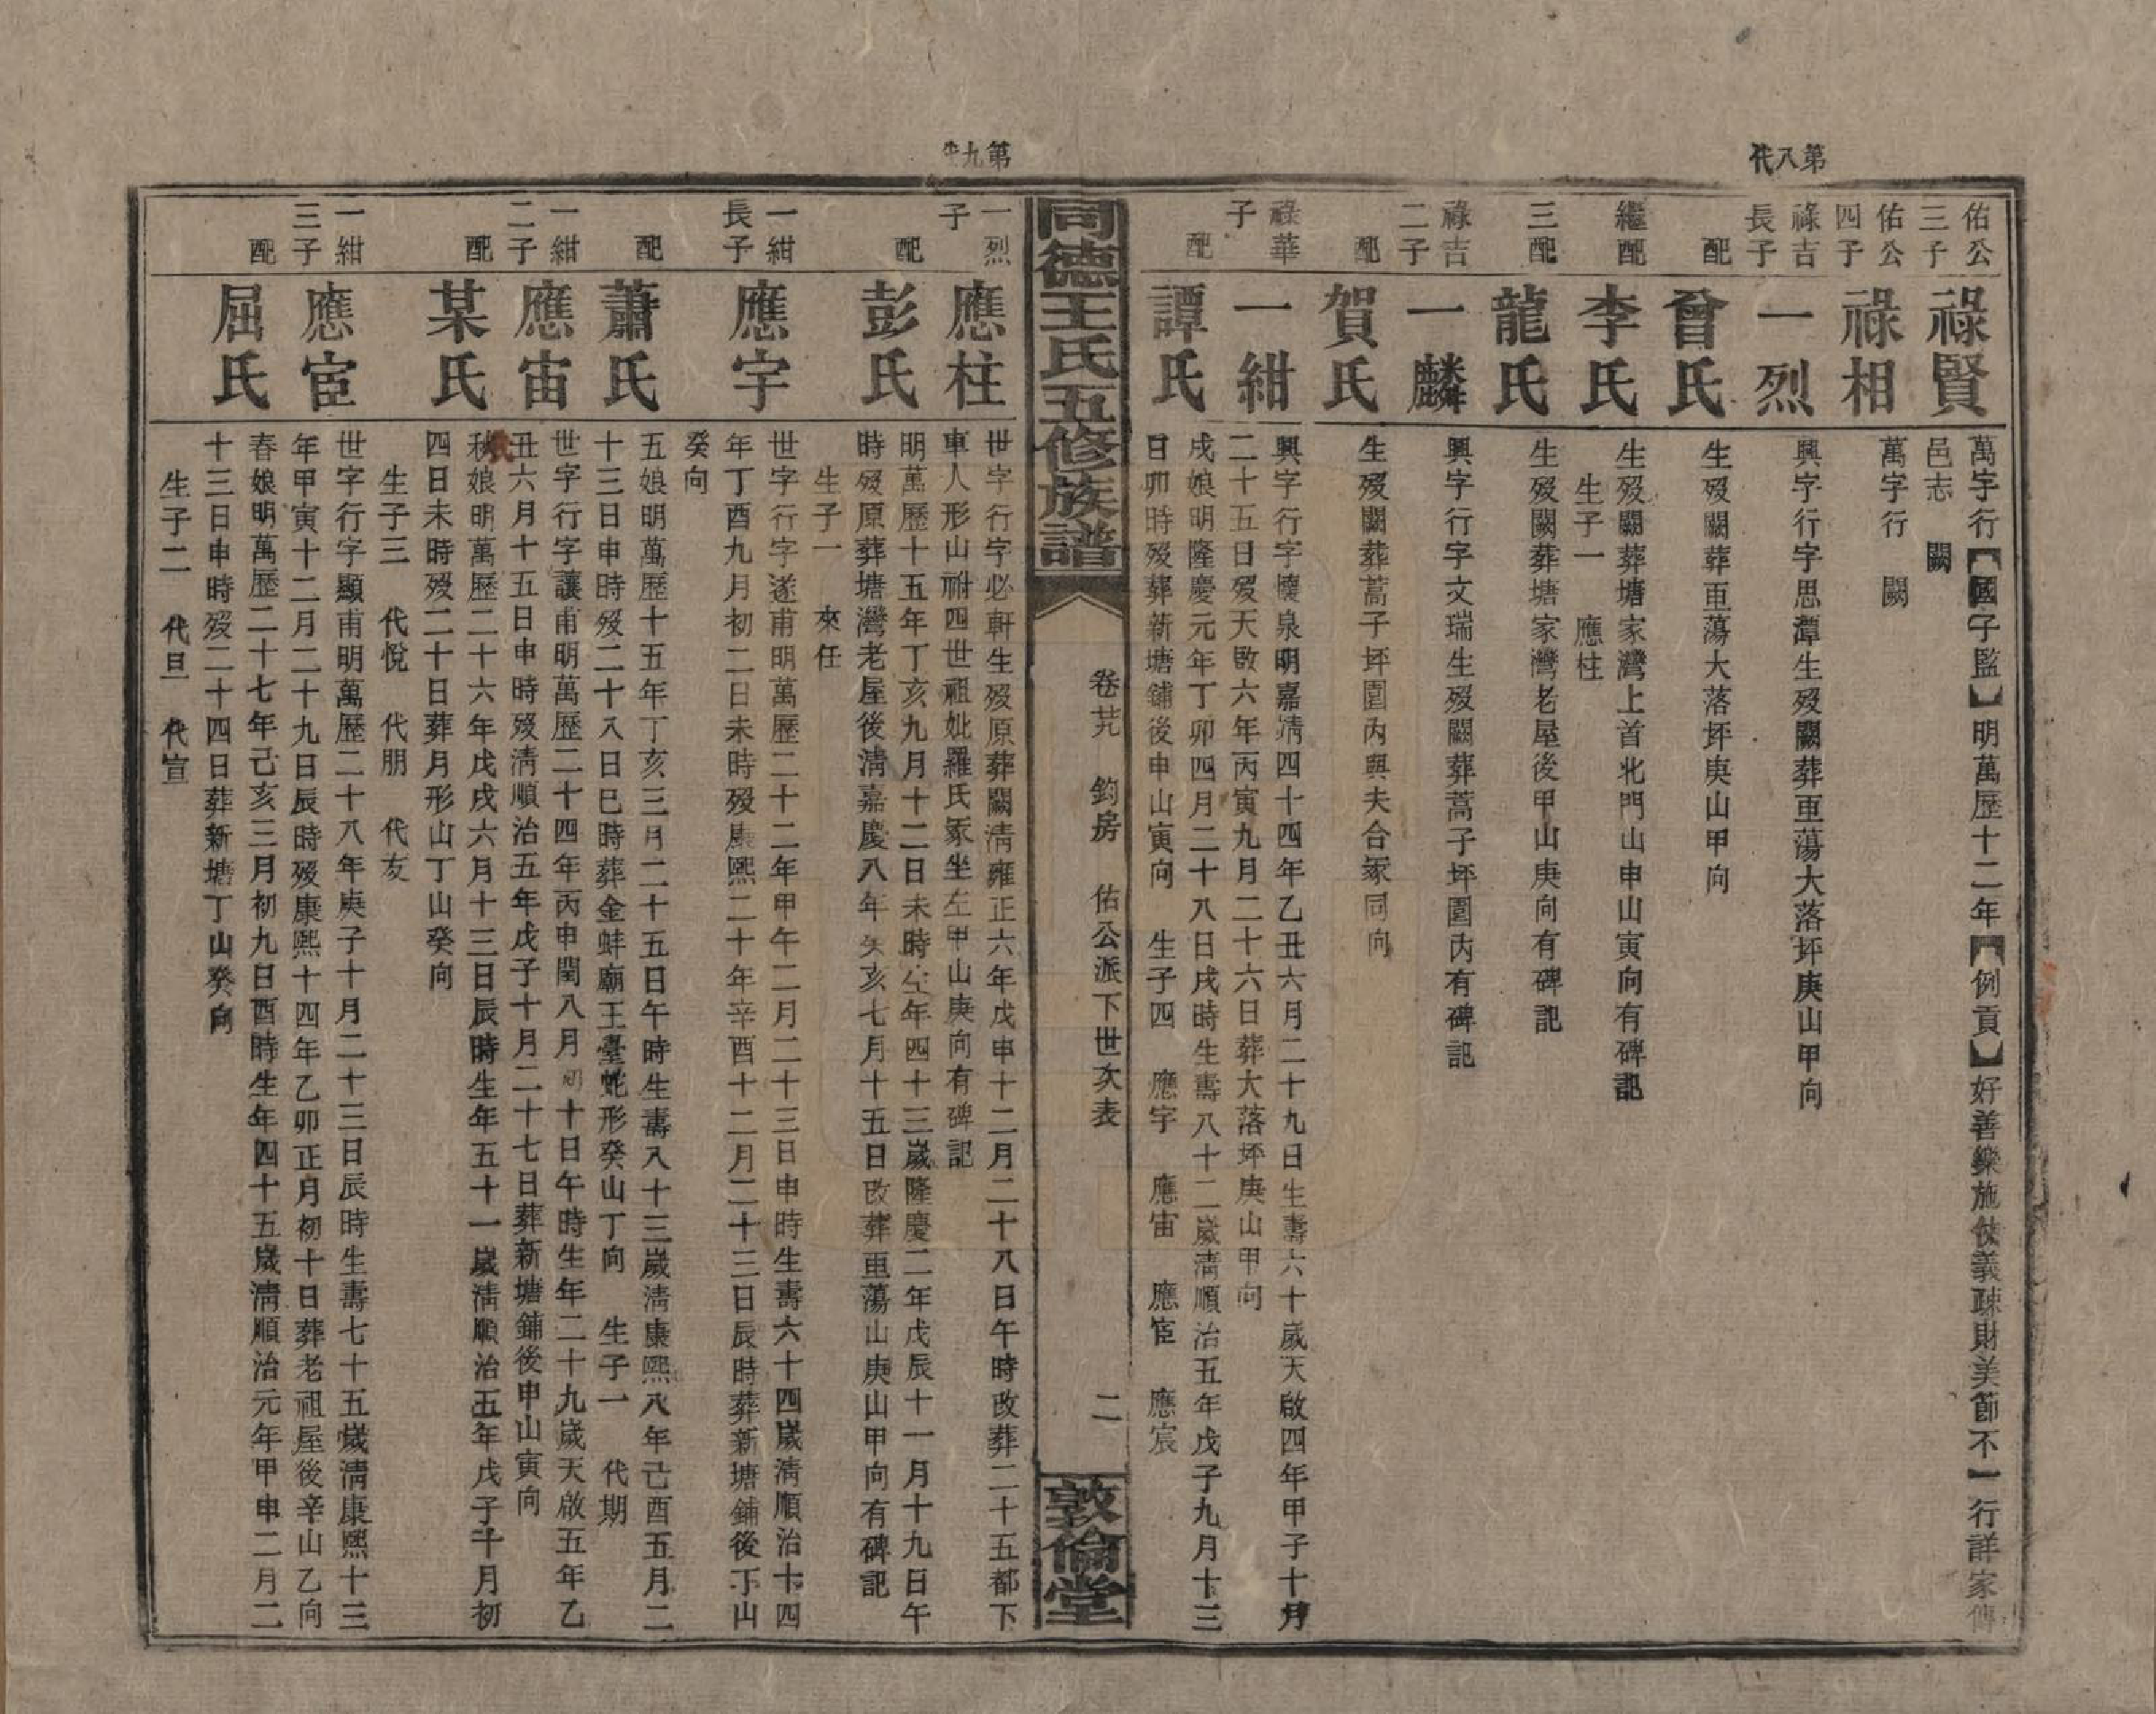 第八代
佑公三子
祿賢
萬字行【國子監】明萬歷十二年【例貢】好善樂施仗義疎財美節不一行詳家傳
邑志 闕
佑公四子
祿相
萬字行 闕
祿吉長子
一烈
興字行字思潭生歿闕葬亘蕩大落坪庚山甲向
配
曾氏
生歿闕葬亘蕩大落坪庚山甲向
繼配
李氏
生歿闕葬塘家灣上首北門山申山寅向有碑記
生子一 應柱
三配
龍氏
生歿闕葬塘家灣老屋後甲山庚向有碑記
祿吉二子
一麟
興字行字文瑞生歿闕葬蒿子坪園內有碑記
配
賀氏
生歿闕葬蒿子坪園內與夫合冢同向
祿華子
一紺
興字行字懷泉明嘉靖四十四年乙丑六月二十九日生壽六十歲天啟四年甲子十月
二十五日歿天啟六年丙寅九月二十六日葬大落坪庚山甲向
配
譚氏
戌娘明隆慶元年丁卯四月二十八日戌時生壽八十二歲清順治五年戊子九月十三
日卯時歿葬新塘鋪後申山寅向 生子四 應宇 應宙 應宦 應宸
同德王氏五修族譜
鈞房 佑公派下世次表
二
敦倫堂
第九
一烈子
應柱
世字行字必軒生歿原葬闕清雍正六年戊申十二月二十八日午時改葬二十五都下
車人形山祔四世祖妣羅氏冢坐左甲山庚向有碑記
配
彭氏
明萬歷十五年丁亥九月十二日未時生年四十三歲隆慶二年戊辰十一月十九日午
時歿原葬塘灣老屋後清嘉慶八年癸亥七月十五日改葬亘蕩山庚山甲向有碑記
生子一 來任
一紺長子
應宇
世字行字遂甫明萬歷二十二年甲午二月二十三日申時生壽六十四歲清順治十四
年丁酉九月初二日未時歿康熙二十年辛酉十二月二十三日辰時葬新塘鋪後丁山
癸向
配
蕭氏
五娘明萬歷十五年丁亥三月二十五日午時生壽八十三歲清康熙八年己酉五月二
十三日申時歿二十八日巳時葬金蚌廟王臺蛇形癸山丁向 生子一 代期
一紺二子
應宙
世字行字讓甫明萬歷二十四年丙申閏八月初十日午時生年二十九歲天啟五年乙
丑六月十五日申時歿清順治五年戊子十月二十七日葬新塘鋪後申山寅向
配
某氏
秋娘明萬歷二十六年戊戌六月十三日辰時生年五十一歲清順治五年戊子十月初
四日未時歿二十日葬月形山丁山癸向
生子三 代悅 代朋 代友
一紺三子
應宦
世字行字顯甫明萬歷二十八年庚子十月二十三日辰時生壽七十五歲清康熙十三
年甲寅十二月二十九日辰時歿康熙十四年乙卯正月初十日葬老祖屋後辛山乙向
配
屈氏
春娘明萬歷二十七年己亥三月初九日酉時生年四十五歲清順治元年甲申二月二
十三日申時歿二十四日葬新塘丁山癸向
生子二 代旦 代宣